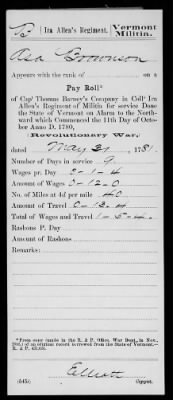 B | Ira Allen's Regiment. | Vermont Militia.
Asa Brownson
Appears with the rank of on a
Pay Roll*
of Capt Thomas Barney's Company in Coll° Ira
Allen's Regiment of Militia for service Done
the State of Vermont on Alarm to the North-
ward which Commenced the 11th Day of Octo-
ber Anno D. 1780,
Revolutionary War,
dated May 21, 1781.
Number of Days in service 9.
Wages pr. Day 2-1-4
Amount of Wages 0-12-0
No. of Miles at 4d per mile 40
Amount of Travel 0-13-4
Total of Wages and Travel 1-5-4.
Rashons P. Day
Amount of Rashons
Remarks:
*From copy made in the R. & P. Office, War Dept., in Nov.,
of an original record borrowed from the State of Vermont.—
R. & P.
Elliott
(545) Copyist.